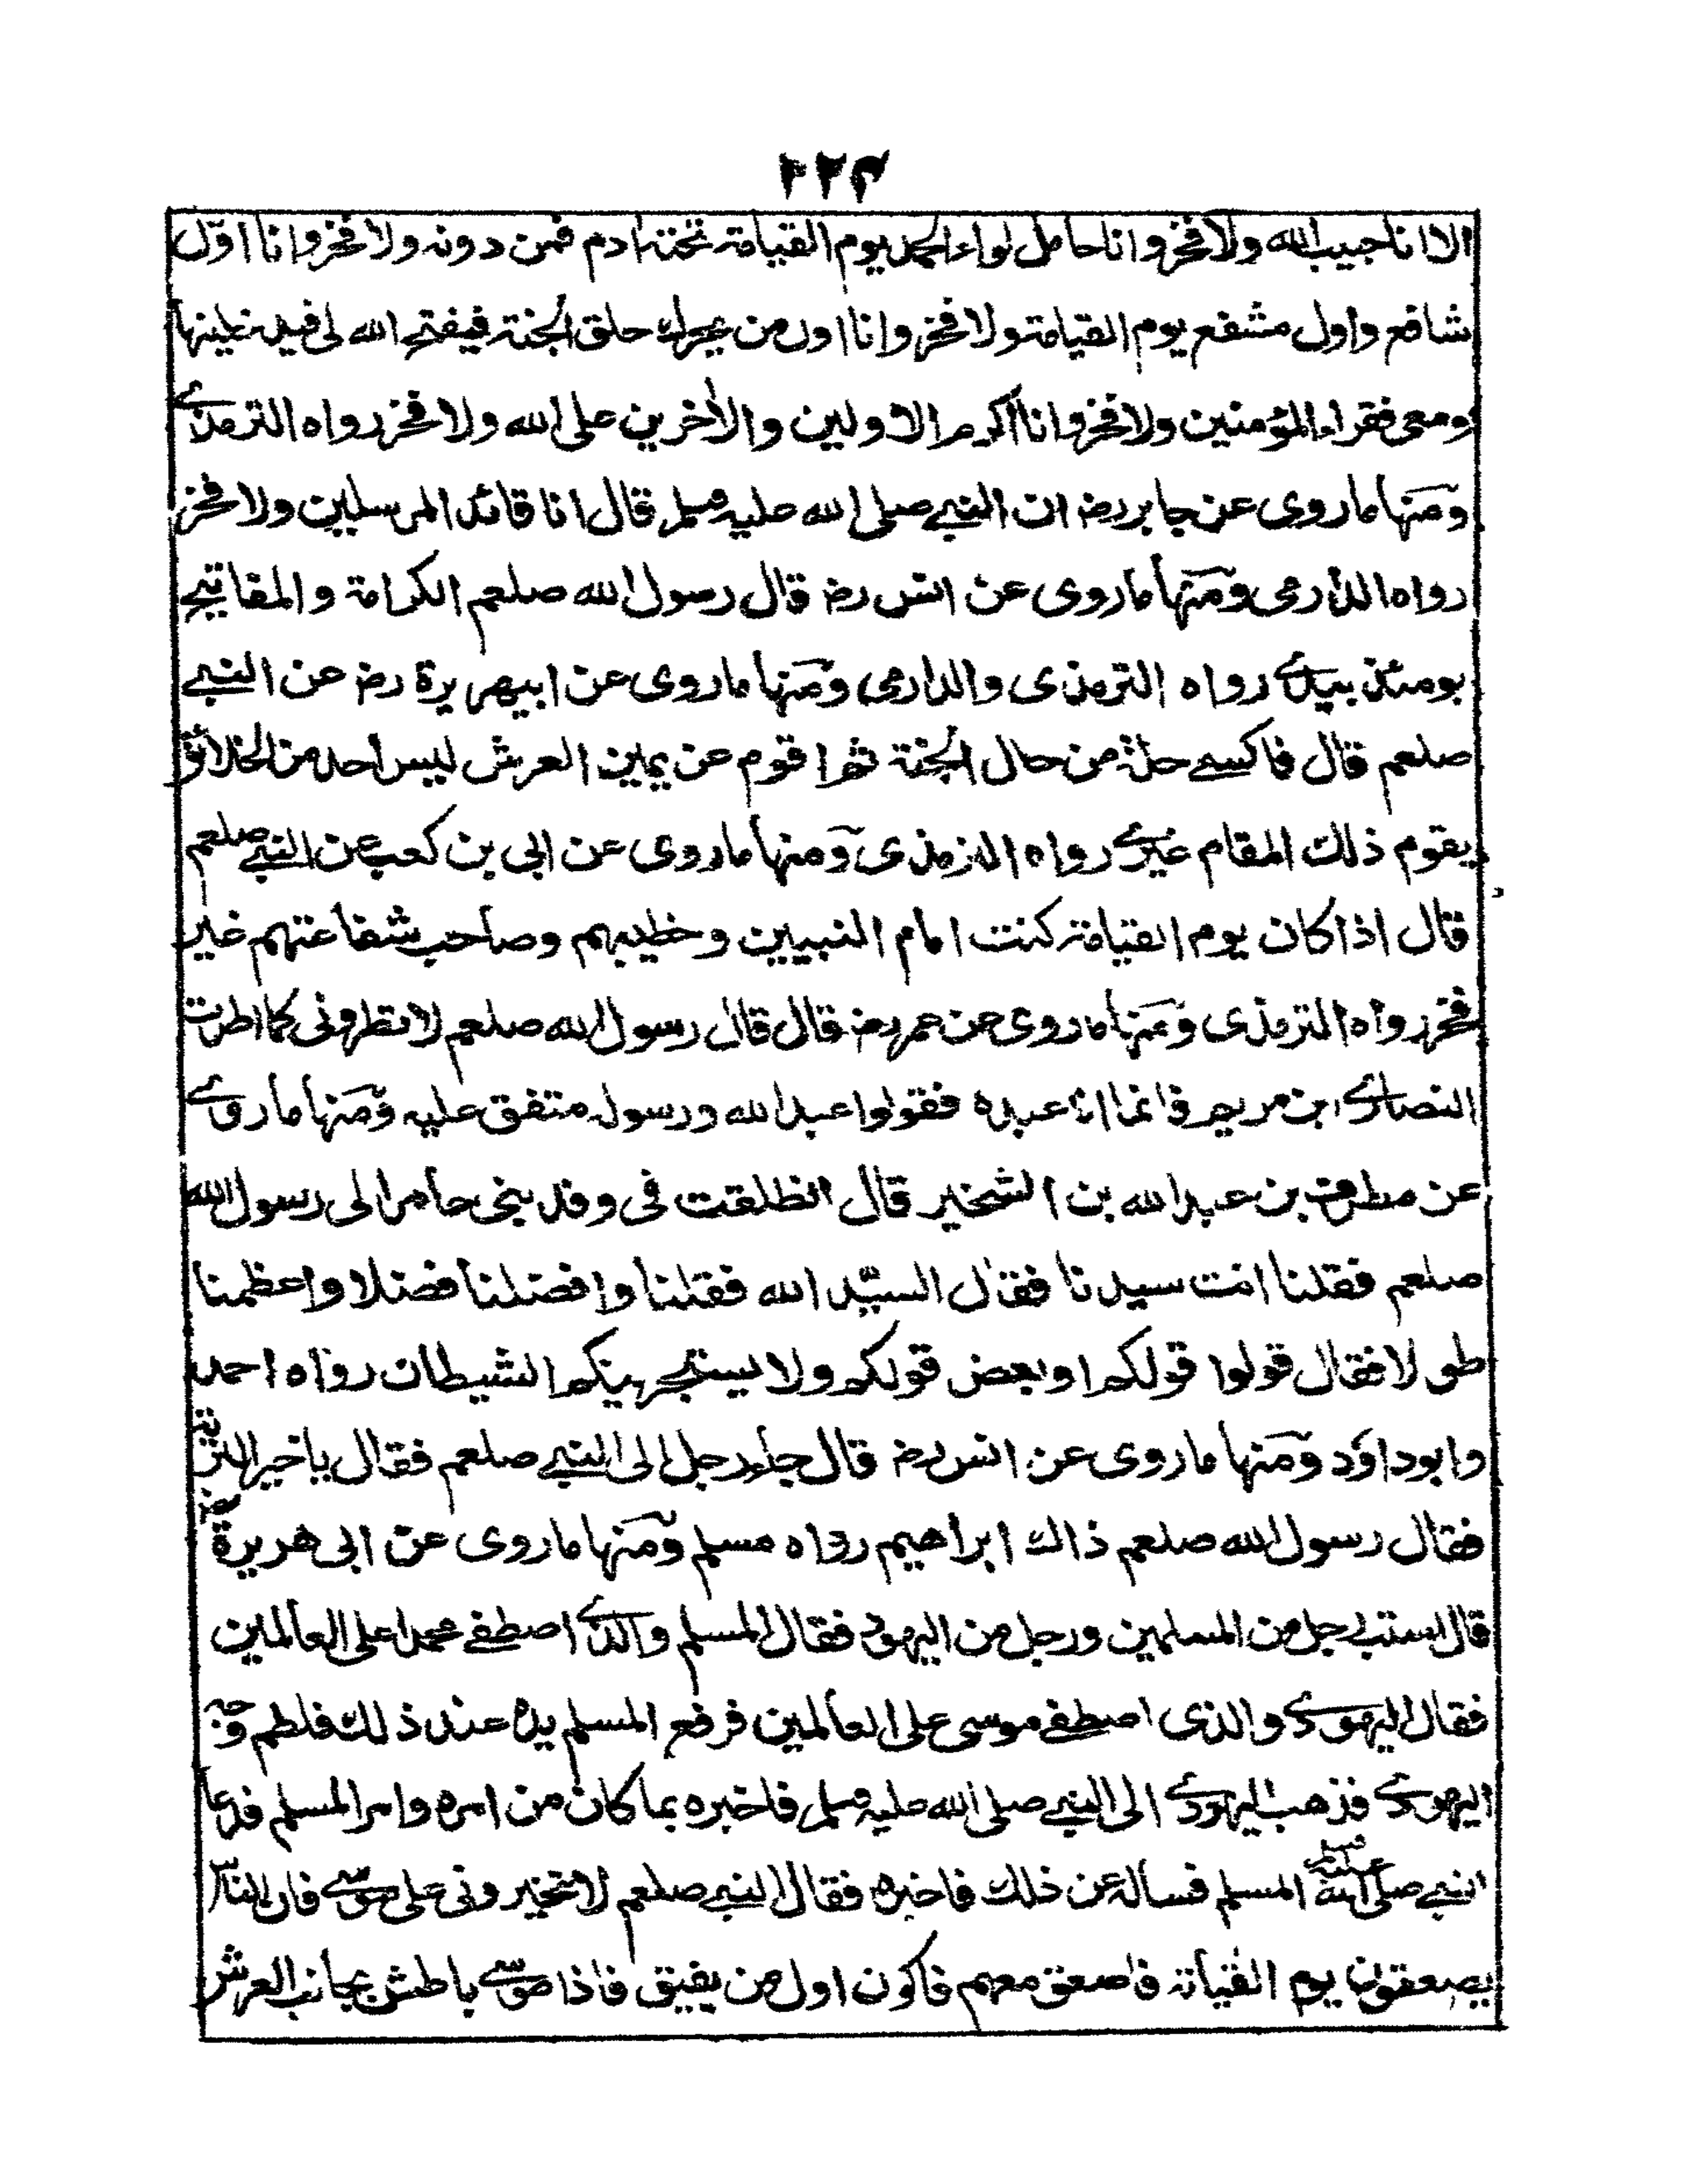 ١٢٤
الا انا حبيب الله ولا فخر وانا حامل لواء الحمد يوم القيامة تحته ادم فمن دونه ولا فخر وانا اوّل
شافع واول مشفع يوم القيامة ولا فخر وانا اول من يحرك حلق الجنة فيفتح الله لى فيدخلينها
ومعى فقراء المؤمنين ولا فخر وانا اكرم الاولين والأخرين على الله ولا فخر رواه الترمذے
ومنها ما روى عن جابر رضـ ان النبے صلى الله عليه وسلم قال انا قائد المرسلين ولا فخر
رواه الدارمى ومنها ما روى عن انس رضـ قال رسول الله صلعم الكرامة والمفاتيح
يومئذ بيدے رواه الترمذى والدارمى ومنها ما روى عن ابيهريرة رضـ عن النبے
صلعم قال فاكسے حلة من حلل الجنة ثم اقوم عن يمين العرش ليس أحد من الخلائق
يقوم ذلك المقام غيرے رواه الترمذى ومنها ما روى عن ابى بن كعب عن النبے صلعم
قال اذا كان يوم القيامة كنت امام النبيين وخطيبهم وصاحب شفاعتهم غير
فخر رواه الترمذى ومنها ما روى عن عمر رضـ قال قال رسول الله صلعم لا تطرونى كما اطرت
النصارے ابن مريم فانما انا عبده فقولوا عبد الله ورسوله متفق عليه ومنها ما روے
عن مطرف بن عبد الله بن الشخير قال انطلقت فى وفد بنى عامر الى رسول الله
صلعم فقلنا انت سيدنا فقال السيّد الله فقلنا وافضلنا فضلا واعظمنا
طولا فقال قولوا قولكم او بعض قولكم ولا يستجرينكم الشيطان رواه احمد
وابوداؤد ومنها ما روى عن انس رضـ قال جاء رجل الى النبے صلعم فقال يا خير البرية
فقال رسول الله صلعم ذاك ابراهيم رواه مسلم ومنها ما روى عن ابى هريرة رضـ
قال استب رجل من المسلمين ورجل من اليهود فقال المسلم والذے اصطفے محمدا على العالمين
فقال اليهودے والذى اصطفے موسى على العالمين فرفع المسلم يده عند ذلك فلطم وجه
اليهودے فذهب اليهودے الى النبے صلى الله عليه وسلم فاخبره بما كان من امره وامر المسلم فدعا
النبے صلى الله عليه وسلم المسلم فساله عن ذلك فاخبره فقال النبے صلعم لا تخيرونى على موسے فان الناس
يصعقون يوم القيامة فاصعق معهم فاكون اول من يفيق فاذا موسے باطش بجانب العرش